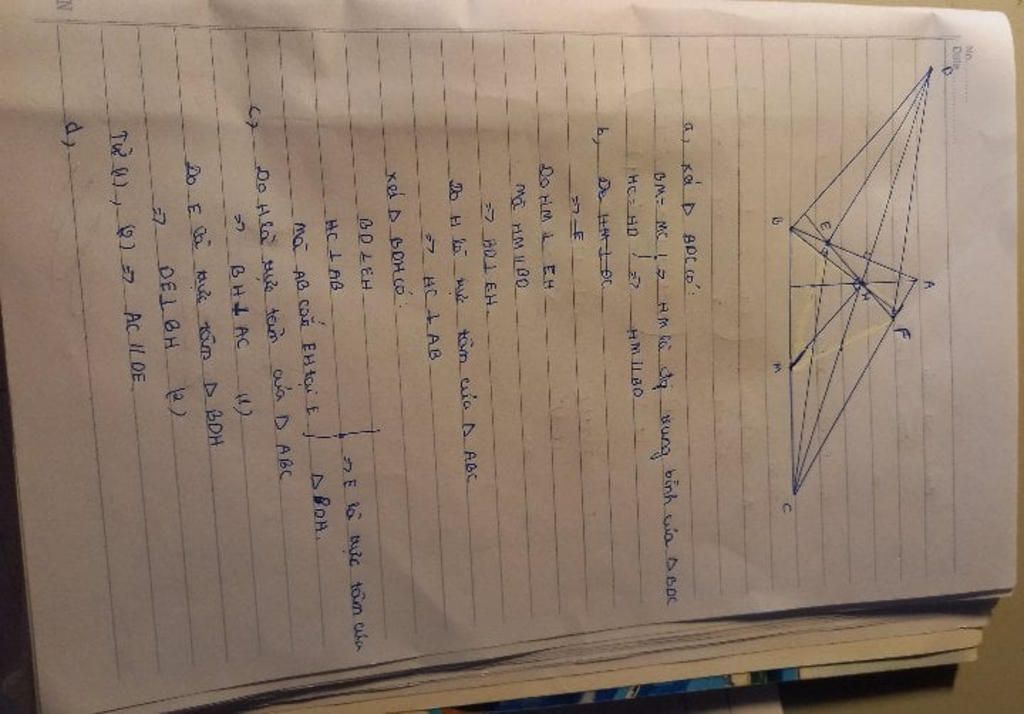 No. ..............
Date ..............
D
A
F
H
E
B
M
C
a, Xét Δ BDC có:
BM = MC } => HM là đg trung bình của Δ BDC
HC = HD } => HM // BD
b, Do HM ⊥ DC
=> E
Do HM ⊥ EH
Mà HM // BD
=> BD ⊥ EH.
Do H là trực tâm của Δ ABC
=> HC ⊥ AB
Xét Δ BDH có:
BD ⊥ EH
HC ⊥ AB
Mà AB cắt EH tại E } => E là trực tâm của
Δ BDH.
c, Do H là trực tâm của Δ ABC
=> BH ⊥ AC (1)
Do E là trực tâm Δ BDH
=> DE ⊥ BH (2)
Từ (1), (2) => AC // DE.
d,